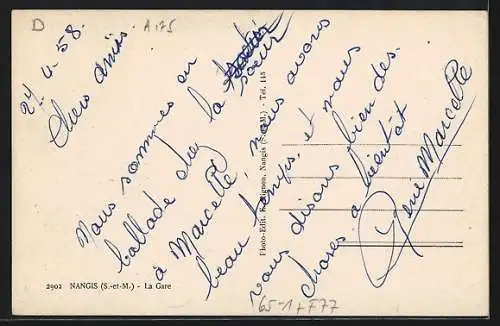 D
A 75
24. 4. 58.
Chers amis.
Nous sommes en
ballade chez la soeur
à Marcelle, nous avons
beau temps, et nous
vous disons bien des
choses a bientôt
René Marcelle
Photo-Edit. Nangis (S.-et-M.) - Tel. 145
2902 NANGIS (S.-et-M.) - La Gare
65-1+F77